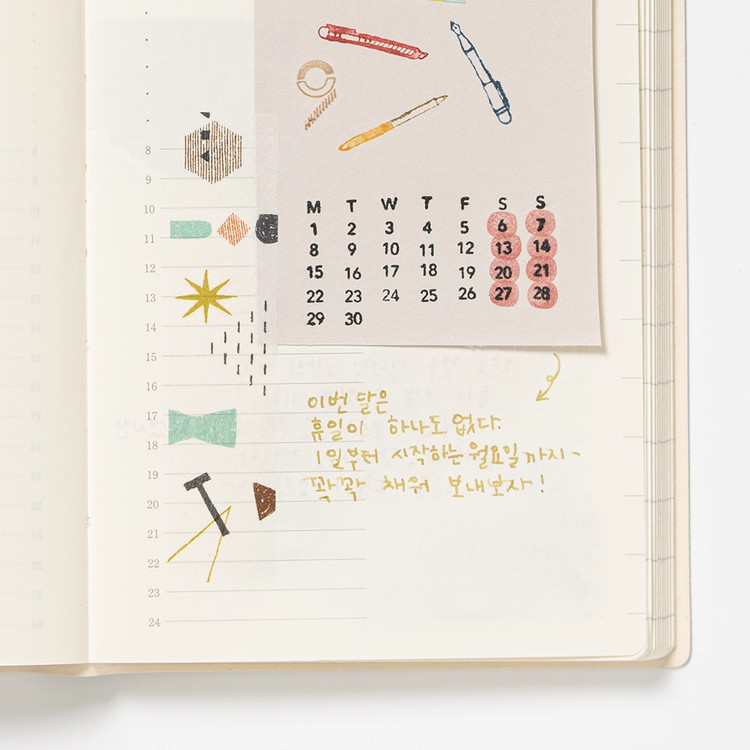 8
9
10
11
12
13
14
15
16
17
18
19
20
21
22
23
24
M T W T F S S
1 2 3 4 5 6 7
8 9 10 11 12 13 14
15 16 17 18 19 20 21
22 23 24 25 26 27 28
29 30
이번 달은
휴일이 하나도 없다.
1일부터 시작하는 월요일까지~
꽉꽉 채워 보내보자!